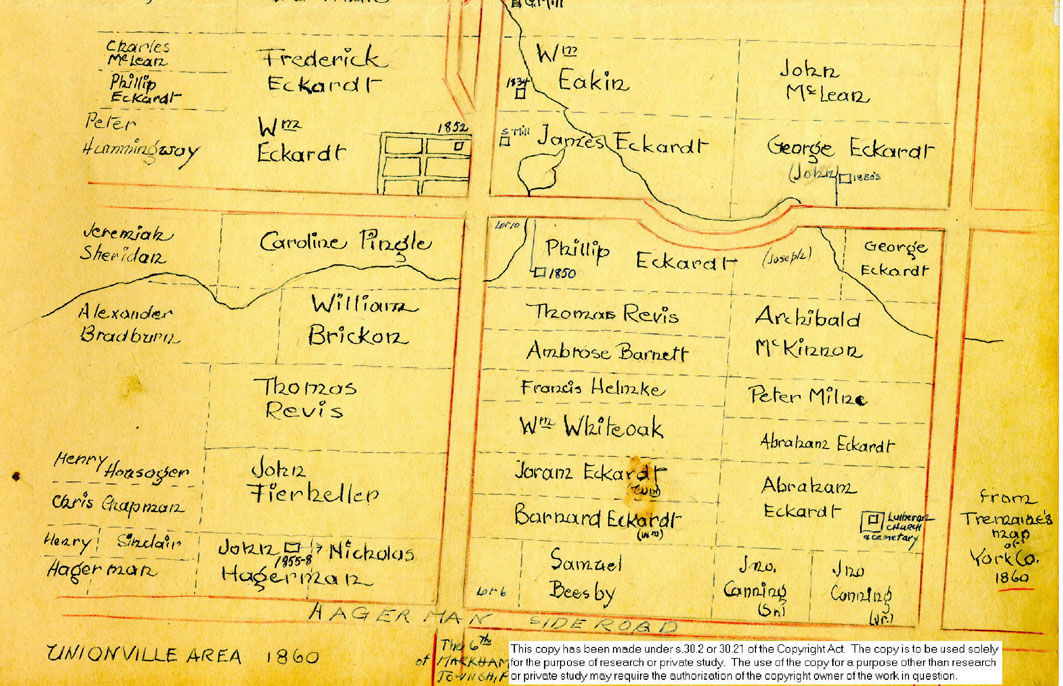 G. Mill
Charles
McLean
Phillip
Eckardt
Frederick
Eckardt
Wm
Eakin
1834
John
McLean
Peter
Hummingway
Wm
Eckardt
1852
S. Mill
James Eckardt
George Eckardt
(John)
1850's
Jeremiah
Sheridan
Caroline Pingle
Lot 10
Phillip Eckardt (Joseph)
1850
George
Eckardt
Alexander
Bradburn
William
Brickon
Thomas Revis
Archibald
McKinnon
Ambrose Barnett
Thomas
Revis
Francis Helmke
Peter Milne
Wm Whiteoak
Abraham Eckardt
Henry Honsager
John
Fierheller
Joran Eckardt
Abraham
Eckardt
Chris Chapman
Barnard Eckardt
(Wm)
Lutheran
Church
& cemetary
Henry Sinclair
Hagerman
John
1855-8
Nicholas
Hagerman
Lot 6
Samuel
Beesby
Jno.
Canning
(Sr.)
Jno
Conning
(Jr.)
from
Tremaine's
map
of
York Co.
1860
HAGERMAN SIDEROAD
UNIONVILLE AREA 1860
The 6th
of MARKHAM
TOWNSHIP
This copy has been made under s.30.2 or 30.21 of the Copyright Act. The copy is to be used solely
for the purpose of research or private study. The use of the copy for a purpose other than research
or private study may require the authorization of the copyright owner of the work in question.